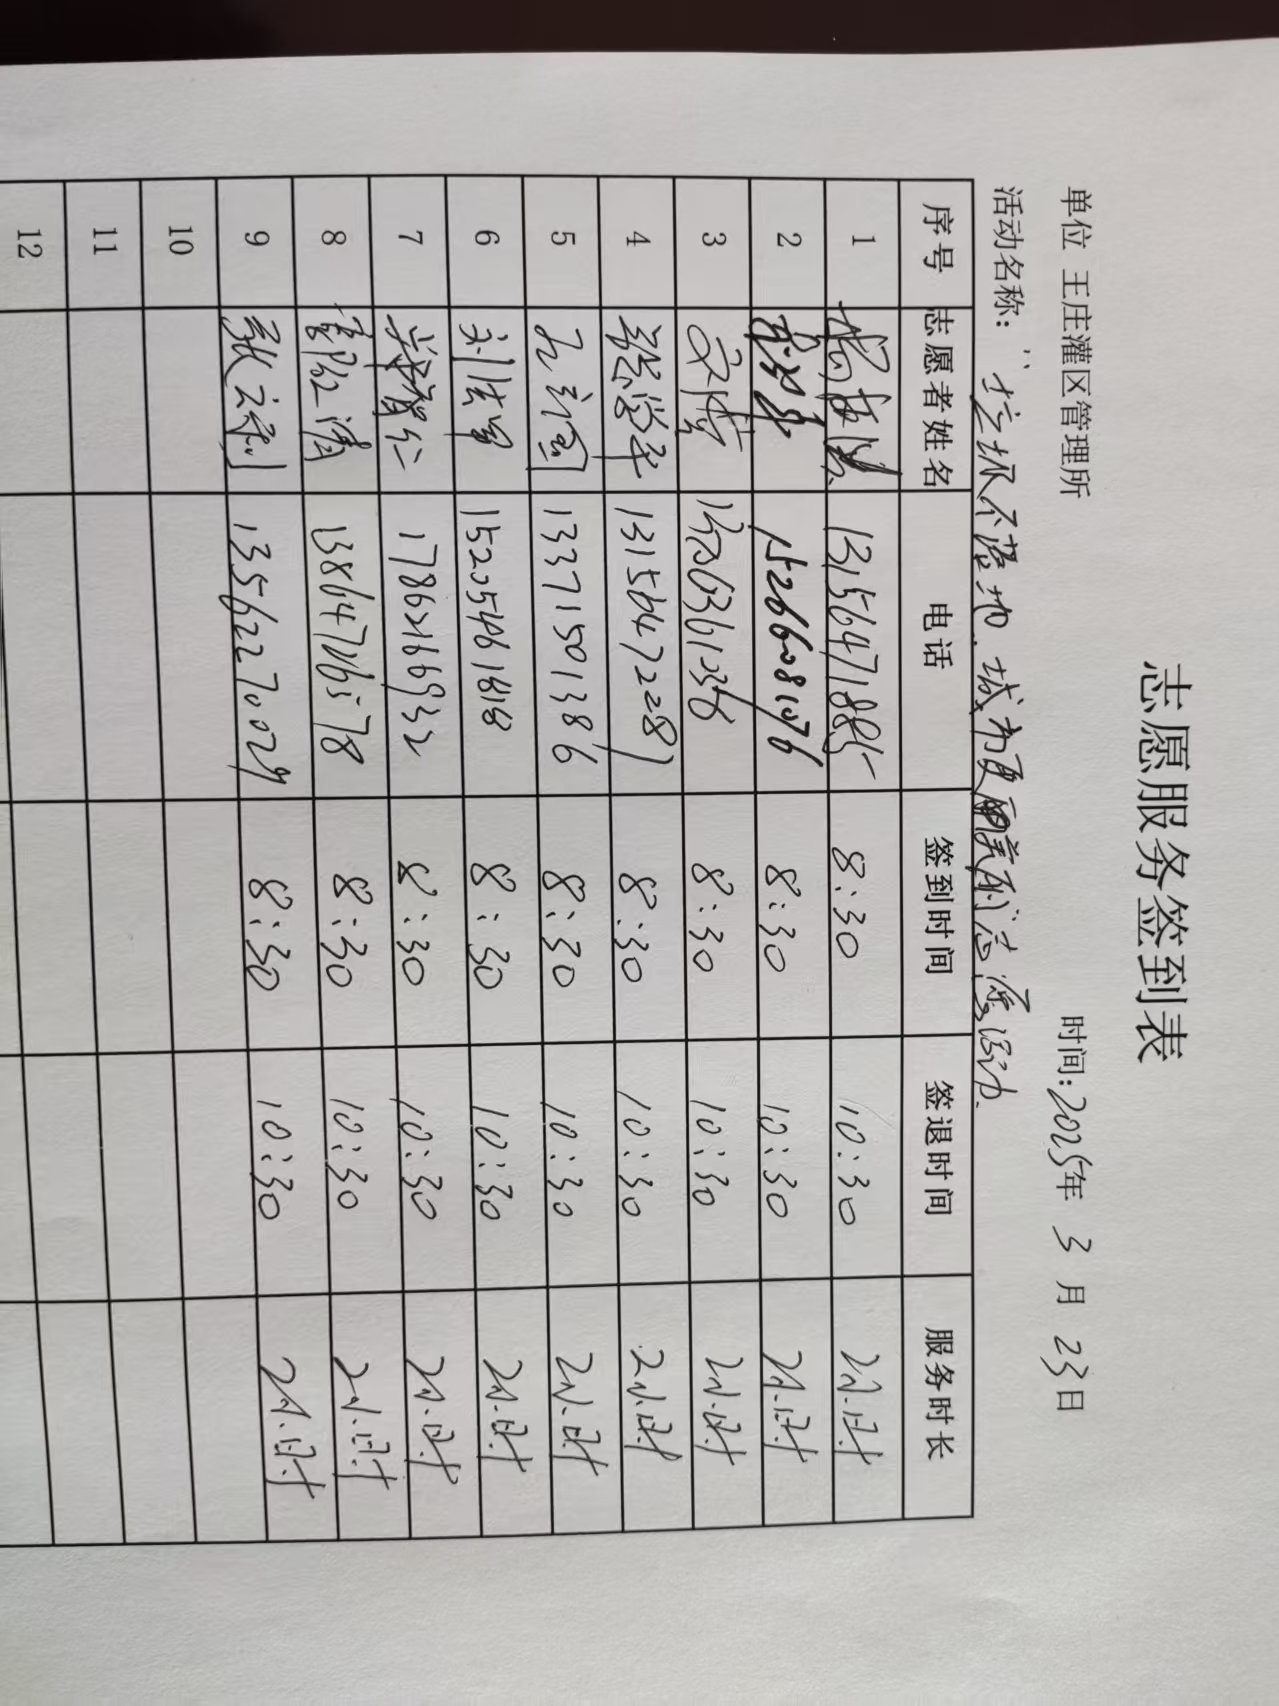 志愿服务签到表
单位 王庄灌区管理所 时间:2025年 3 月 23日
活动名称: "垃圾不落地.城市更美丽"志愿活动.
序号 志愿者姓名 电话 签到时间 签退时间 服务时长
1 13156471885 8:30 10:30 2小时
2 15266081076 8:30 10:30 2小时
3 8:30 10:30 2小时
4 13156472281 8:30 10:30 2小时
5 13371501386 8:30 10:30 2小时
6 刘法军 15205461618 8:30 10:30 2小时
7 17862166932 8:30 10:30 2小时
8 13864706578 8:30 10:30 2小时
9 张云利 13562270029 8:30 10:30 2小时
10
11
12